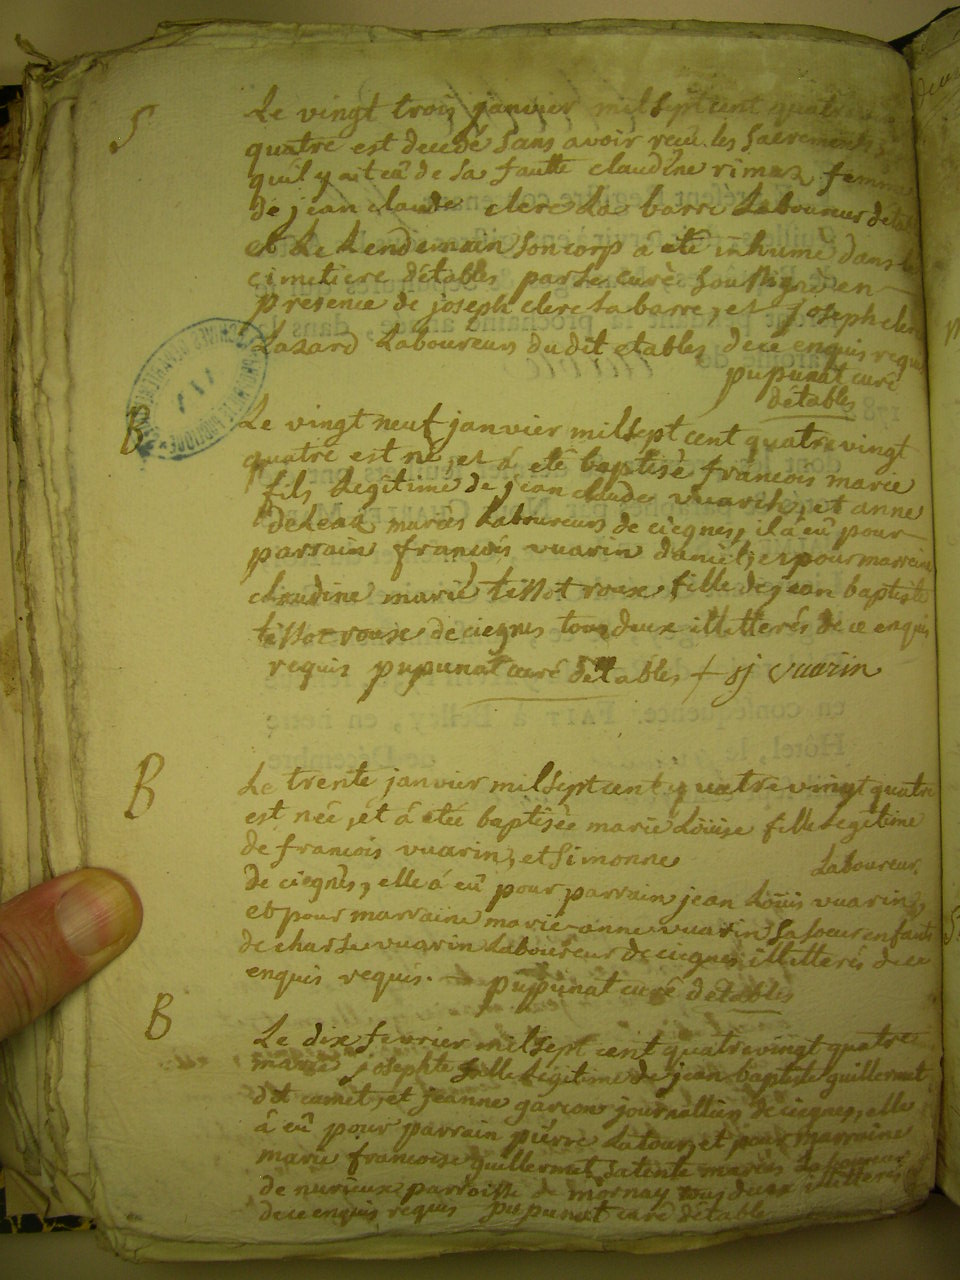 S
Le vingt trois janvier mil sept cent quatre
quatre est decedé sans avoir recu les sacrements
quil y ait eû de sa fautte claudine rimaz femme
de jean claude clerc La barre Laboureur
et Le Lendemain son corp a été inhumé dans
cimetiere détables par Le curé soussigné en
présence de joseph clerc La barre, et joseph clerc
Lazard Laboureurs dudit etables de ce enquis requis
pupunat curé
détables
B
Le vingt neuf janvier mil sept cent quatre vingt
quatre est né, et á eté baptisé francois marie
fils Legitime de jean claude vuarin, et anne
maries Laboureurs de ciegnes, il á eû pour
parrain francois vuarin daniel, et pour marraine
claudine marie tissot roux fille de jean baptiste
tissot roux de ciegnes tous deux illitterés de ce enquis
requis pupunat curé détables + sj vuarin
B
Le trente janvier mil sept cent quatre vingt quatre
est née, et á etée baptisée marie Loüise fille Legitime
de francois vuarin, et simonne Laboureur
de ciegnes, elle á eû pour parrain jean Loüis vuarin,
et pour marraine marie-anne vuarin sa soeur enfants
de charle vuarin Laboureur de ciegnes illitterés de ce
enquis requis. pupunat curé détables
B
Le dix fevrier mil sept cent quatre vingt quatre
marie josephte fille Légitime de jean baptiste guillermet
dit camet, et jeanne garcon journallier de ciegnes, elle
â eû pour parrain pierre Latour, et pour marraine
marie francoise guillermet sa tente mariés Laboureur
de nurieux parroisse de mornay tous deux illitterés
de ce enquis requis pupunat curé détable